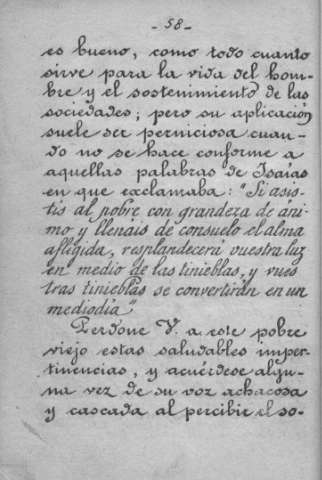 - 58 -
es bueno, como todo cuanto
sirve para la vida del hom-
bre y el sostenimiento de las
sociedades; pero su aplicación
suele ser perniciosa cuan-
do no se hace conforme a
aquellas palabras de Isaías
en que exclamaba: "Si asis-
tis al pobre con grandeza de áni-
mo y llenáis de consuelo el alma
afligida, resplandecerá vuestra luz
en medio de las tinieblas, y vues
tras tinieblas se convertirán en un
mediodía"
Perdone V. a este pobre
viejo estas saludables imper-
tinencias, y acuérdese algu-
na vez de su voz achacosa
y cascada al percibir el so-